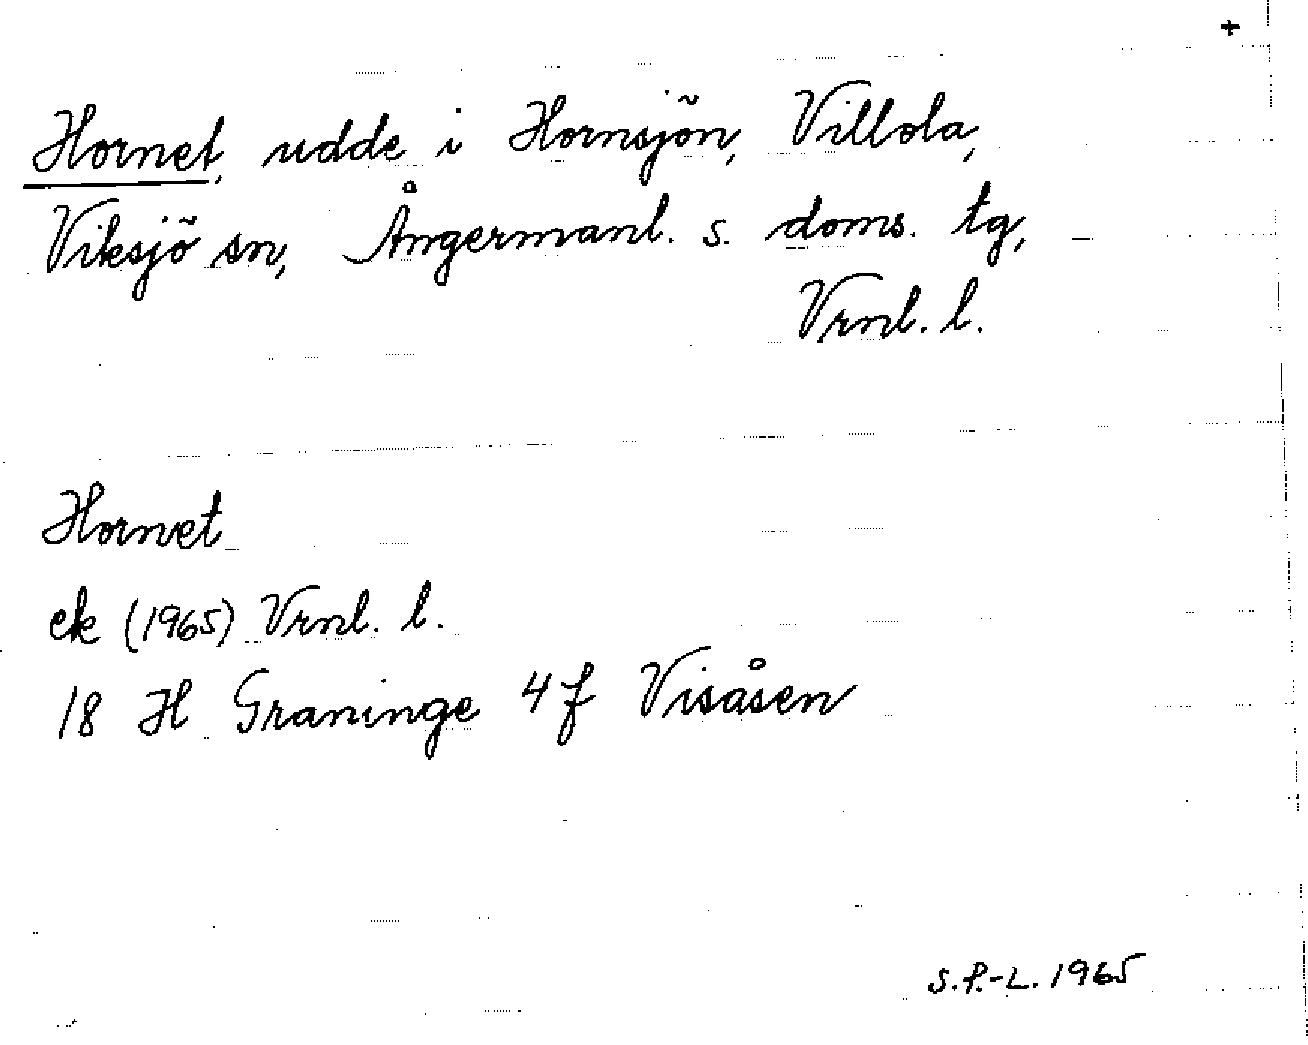 +
Hornet, udde i Hornsjön, Villola,
Viksjö sn, Ångermanl. s. doms. tg,
Vrnl. l.
Hornet
ek (1965) Vrnl. l.
18 H Graninge 4 f Visåsen
S.P.-L. 1965